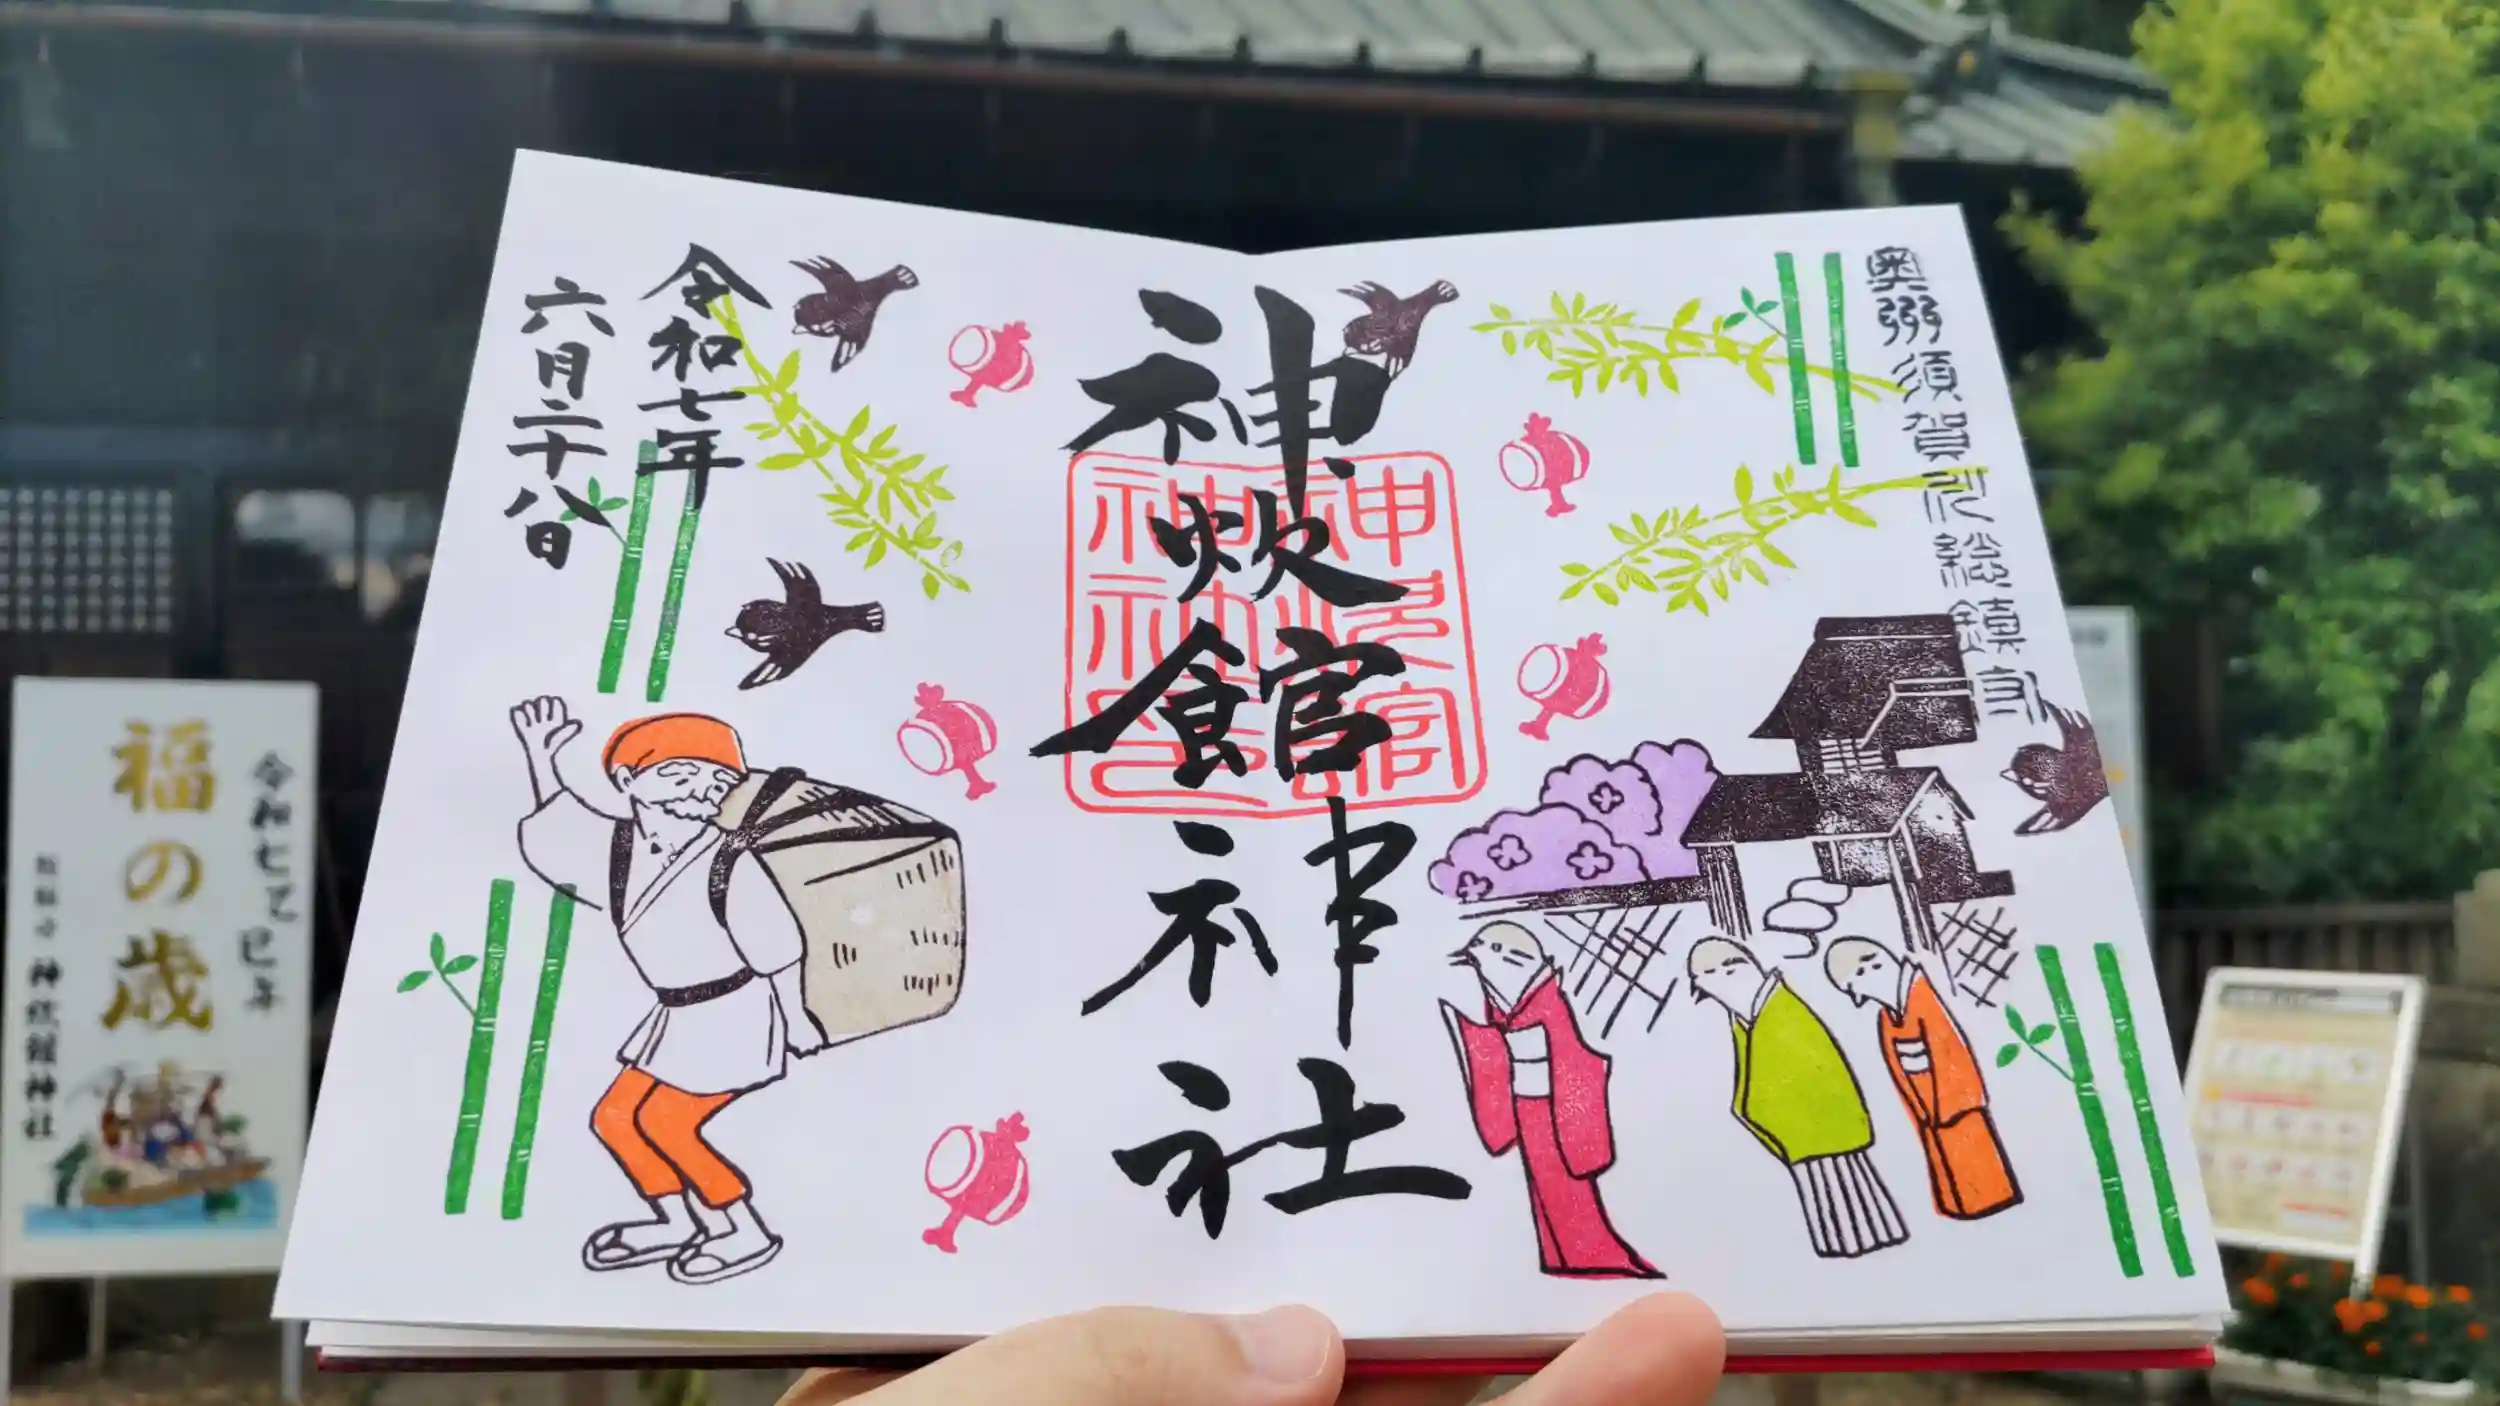 奥州須賀川総鎮守
神炊館神社
神炊館
神社印
令和七年
六月二十八日
令和七乙巳年
福の歳
総鎮守 神炊館神社